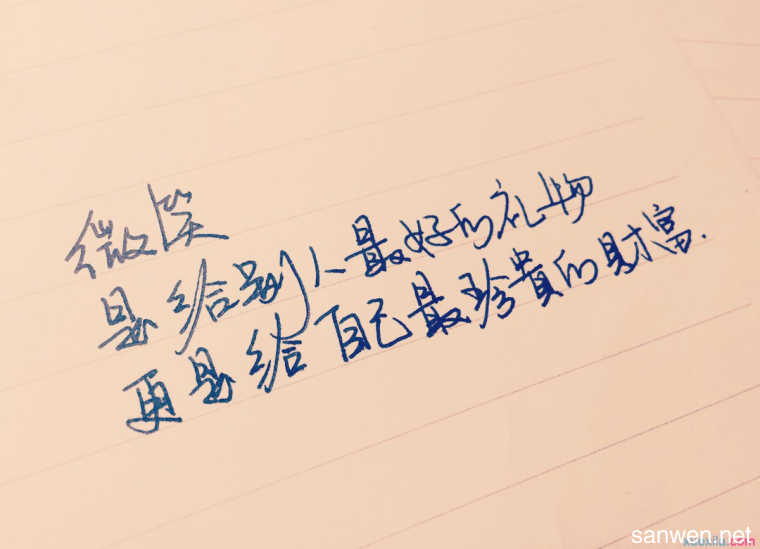 微笑
是给别人最好的礼物
更是给自己最珍贵的财富.
sanwen.net